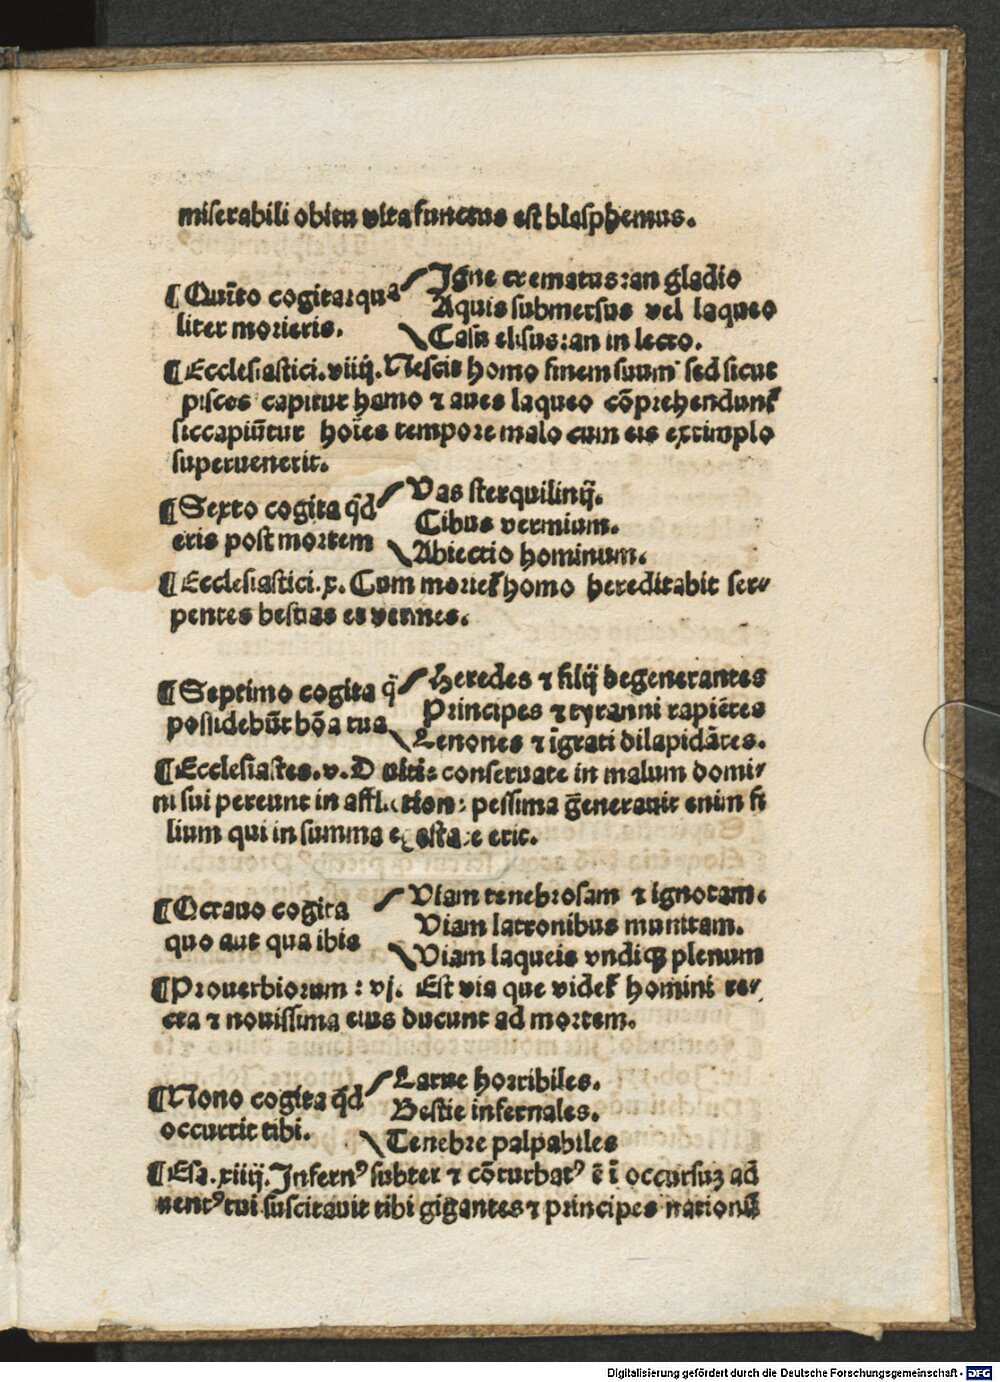 miserabili obitu vita functus est blasphemus.
¶Quīto cogita: qua
liter morieris.
Igne crematus: an gladio
Aquis submersus vel laqueo
Casu elisus: an in lecto.
¶Ecclesiastici. viiij. Nescit homo finem suum sed sicut
pisces capitur hamo ⁊ aues laqueo cōprehendunt᷑
sic capiūtur hoīes tempore malo cum eis extimplo
superuenerit.
¶Sexto cogita qd̄
eris post mortem
Vas sterquilinij.
Cibus vermium.
Abiectio hominum.
¶Ecclesiastici. x. Cum moriet᷑ homo hereditabit ser⸗
pentes bestias et vermes.
¶Septimo cogita q̄
possidebūt bōa tua
Heredes ⁊ filij degenerantes
Principes ⁊ tyranni rapiētes
Lenones ⁊ īgrati dilapidātes.
¶Ecclesiastes. v. D uitie conseruate in malum domi⸗
ni sui pereunt in affliction: pessima ḡenerauit enim fi
lium qui in summa egestate erit.
¶Octauo cogita
quo aut qua ibis
Viam tenebrosam ⁊ ignotam.
Viam latronibus munitam.
Viam laqueis vndiqꝫ plenum
¶Prouerbiorum: vj. Est via que videt᷑ homini re⸗
cta ⁊ nouissima eius ducunt ad mortem.
¶Nono cogita qd̄
occurrit tibi.
Larue horribiles.
Bestie infernales.
Tenebre palpabiles
¶Esa. xiiij. Infernꝰ subter ⁊ cōturbatꝰ ē ī occursuꝫ ad
uentꝰ tui suscitauit tibi gigantes ⁊ principes nationū
Digitalisierung gefördert durch die Deutsche Forschungsgemeinschaft - DFG